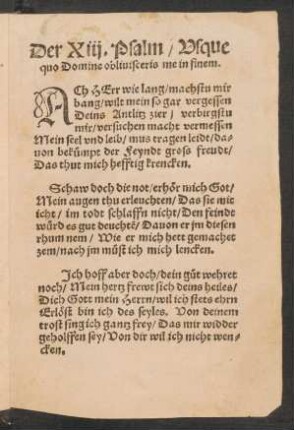 Der Xiij. Psalm / Vsque
quo Domine obliuisceris me in finem.
ACh HErr wie lang / machstu mir
bang / wilt mein so gar vergessen
Deins Antlitz zier / verbirgstu
mir / versuchen macht vermessen
Mein seel vnd leib / mus tragen leidt / da-
uon bekümpt der Feyndt gross freudt /
Das thut mich hefftig krencken.
Schaw doch die not / erhör mich Got /
Mein augen thu erleuchten / Das sie mit
icht / im todt schlaffn nicht / Den feindt
würd es gut deuchtē / Dauon er jm diesen
rhum nem / Wie er mich hett gemachet
zem / nach jm müst ich mich lencken.
Ich hoff aber doch / dein güt wehret
noch / Mein hertz frewt sich deins heiles /
Dich Gott mein Herrn / wil ich stets ehrn
Erlöst bin ich des seyles. Von deinem
trost sing ich gantz frey / Das mir widder
geholffen sey / Von dir wil ich nicht wen-
cken.